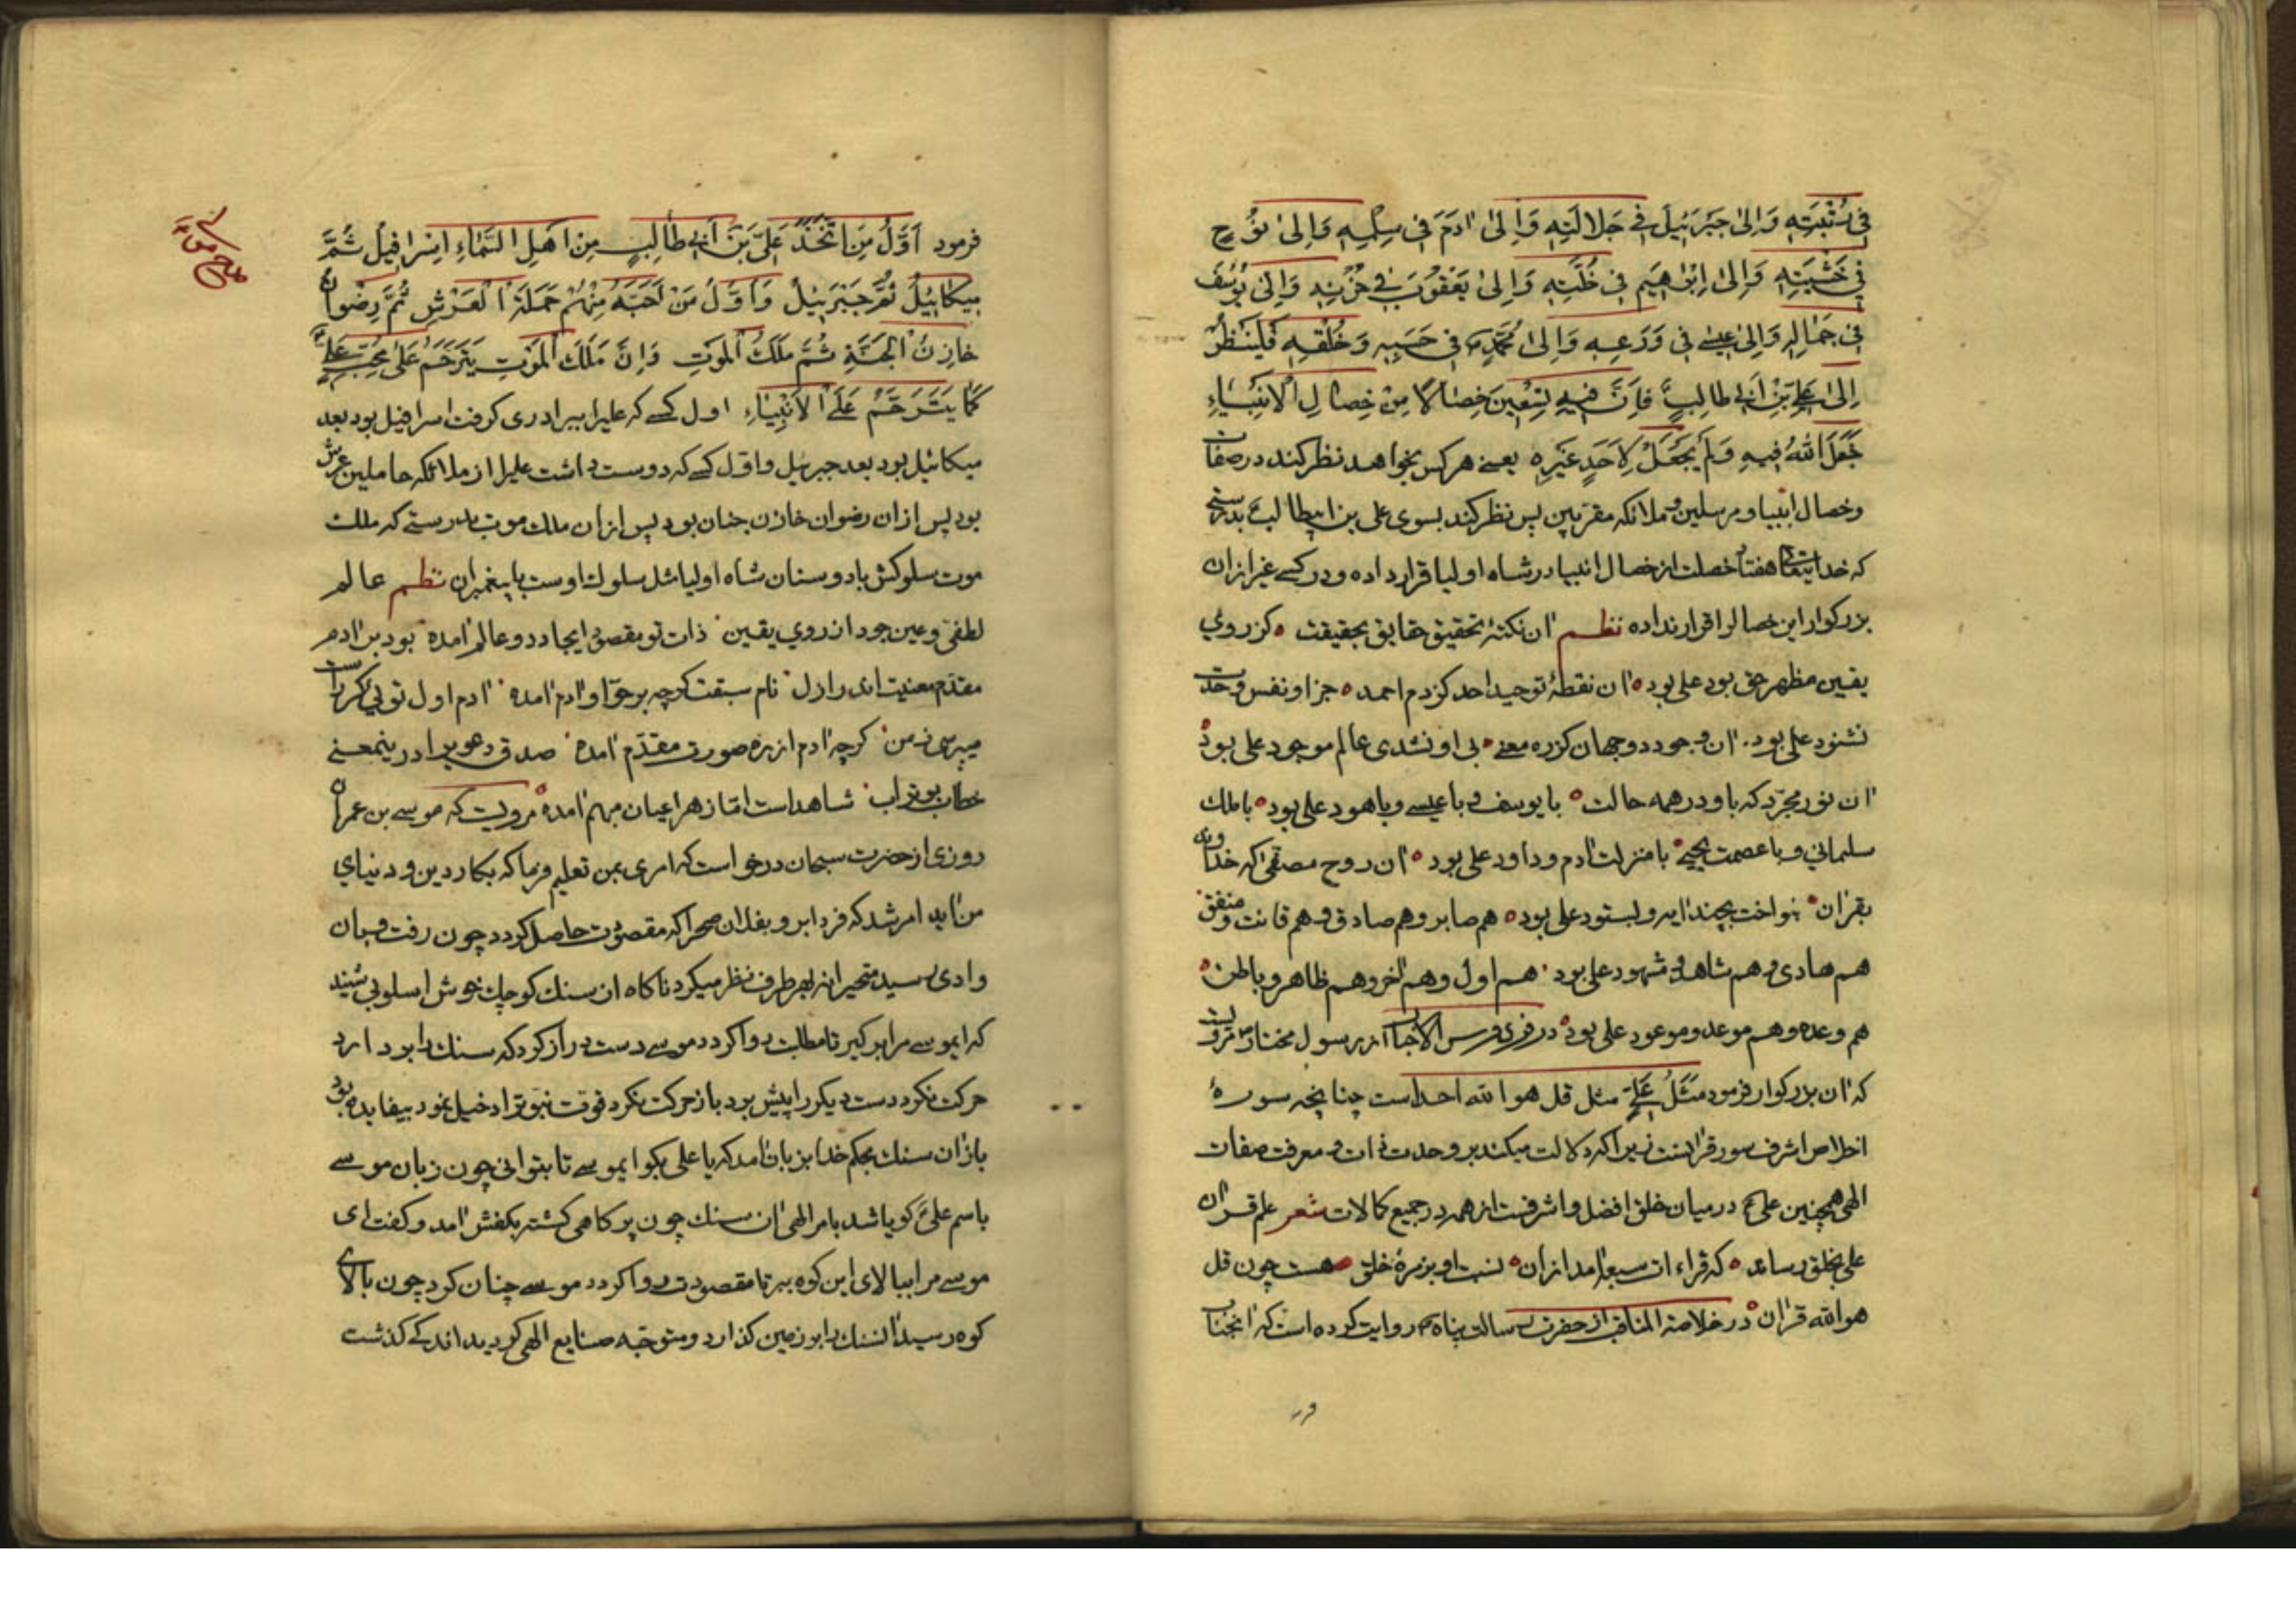 فِي رُتْبَتِهِ وَاِلىٰ جَبْرَئِيلَ فِي جَلالَتِهِ وَاِلىٰ ادَمَ فِي سِلْمِهِ وَاِلىٰ نُوْحٍ
فِي خَشْيَتِهِ وَاِلىٰ اِبْراهِيمَ فِي خُلَّتِهِ وَاِلىٰ يَعْقُوْبَ فِي حُزْنِهِ وَاِلىٰ يُوْسُفَ
فِي جَمالِهِ وَاِلىٰ عيسى فِي وَرَعِهِ وَاِلىٰ مُحَمَّدٍ فِي حَسَبِهِ وَخُلْقِهِ فَلْيَنْظُرْ
اِلىٰ عَلِيِّ بْنِ اَبي طالِبٍ فَاِنَّ فيهِ تِسْعينَ خِصالًا مِنْ خِصالِ الْاَنْبِياءِ
جَعَلَ اللهُ فيهِ وَلَمْ يَجْعَلْ لِاَحَدٍ غَيْرِهِ يعنى هركس بخواهد نظر كند در صفات
وخصال انبيا و مرسلين و ملائكه مقربين پس نظر كند بسوى على بن ابيطالب بدرستى
كه خدايتعالى هفتاد خصلت از خصال انبيا در شاه اوليا قرار داده و در كسى غير از ان
بزركوار اين خصالرا قرار نداده نظم ان نكتهٔ تحقيق حقايق بحقيقت كز روي
يقين مظهر حق بود على بود ان نقطهٔ توحيد احد كز دم احمد جز او نفس وحدت
نشنود على بود ان وجود دو جهان كز ره معنى بى او نشدى عالم موجود على بود
ان نور مجرد كه باو در همه حالت با يوسف و با عيسى و با هود على بود با ملك
سليمانى و با عصمت يحيى با منزلت ادم و داود على بود ان روح مصفى كه خداوند
بقران بنواخت بچند ايه و بستود على بود هم صابر و هم صادق و هم قانت و منفق
هم هادى و هم شاهد و مشهود على بود هم اول و هم اخر و هم ظاهر و باطن
هم وعده و هم موعد و موعود على بود در فردوس الاخبار از رسول مختار مرويست
كه ان بزركوار فرمود مَثَلُ عَلِيّ مثل قل هو الله احد است چنانچه سورهٔ
اخلاص اشرف سور قرانست زيرا كه دلالت ميكند بر وحدت ذات و معرفت صفات
الهى همچنين على در ميان خلق افضل و اشرفست از همه در جميع كمالات شعر علم قران
على بخلق رساند كه قراءات سبعه امد از ان نسبت او بزمرهٔ خلق هست چون قل
هو الله قران در خلاصة المناقب از حضرت رسالت پناه روايت كرده است كه انجناب
فرمود اَوَّلُ مَنِ اتَّخَذَ عَلِيَّ بْنَ اَبي طالِبٍ مِنْ اَهْلِ السَّمٰاءِ اِسْرافيلُ ثُمَّ
ميكائيلُ ثُمَّ جَبْرَئيلُ وَاَوَّلُ مَنْ اَحَبَّهُ مِنْهُمْ حَمَلَةُ الْعَرْشِ ثُمَّ رِضْوانُ
خازِنُ الْجَنَّةِ ثُمَّ مَلَكُ الْمَوْتِ وَاِنَّ مَلَكَ الْمَوْتِ يَتَرَحَّمُ عَلىٰ مُحِبّ عَلِيٍّ
كَما يَتَرَحَّمُ عَلَى الْاَنْبِياءِ اول كسى كه عليرا ببرادرى كرفت اسرافيل بود بعد
ميكائيل بود بعد جبرئيل و اول كسى كه دوست داشت عليرا از ملائكه حاملين عرش
بود پس از ان رضوان خازن جنان بود پس از ان ملك موت بدرستى كه ملك
موت سلوكش با دوستان شاه اوليا مثل سلوك اوست با پيغمبران نظم عالم
لطفى و عين جود از روي يقين ذات تو مقصود ايجاد دو عالم امده بود بر ادم
مقدم معنيت اندر ازل نام سبقت كرچه بر حوا و ادم امده ادم اول توئى كر راست
ميپرسى ز من كرچه ادم از ره صورت مقدم امده صدق دعويرا درينمعنى
خطاب بوتراب شاهد است اما ز هر اعيان مبهم امده مرويست كه موسى بن عمران
روزى از حضرت سبحان درخواست كه امرى بمن تعليم فرما كه بكار دين و دنياي
من ايد امر شد كه فردا برو بفلان صحرا كه مقصودت حاصل كردد چون رفت و بان
وادى رسيد متحيرانه بهر طرف نظر ميكرد ناكاه ان سنك كوچك خوش اسلوبى شنيد
كه ايموسى مرا بركير تا مطلبت روا كردد موسى دست دراز كرد كه سنك را بردارد
حركت نكرد دست ديكر را پيش برد باز حركت نكرد قوت نبوترا دخيل نمود بيفايده بود
باز ان سنك بحكم خدا بزبان امد كه يا على بكو ايموسى تا بتوانى چون زبان موسى
باسم على كويا شد بامر الهى ان سنك چون پر كاهى كشته بكفش امد و كفت اى
موسى مرا ببالاى اين كوه ببر تا مقصودت روا كردد موسى چنان كرد چون بالاى
كوه رسيد انسنك را بر زمين كذارد و متوجه صنايع الهى كرديد اندكى كذشت